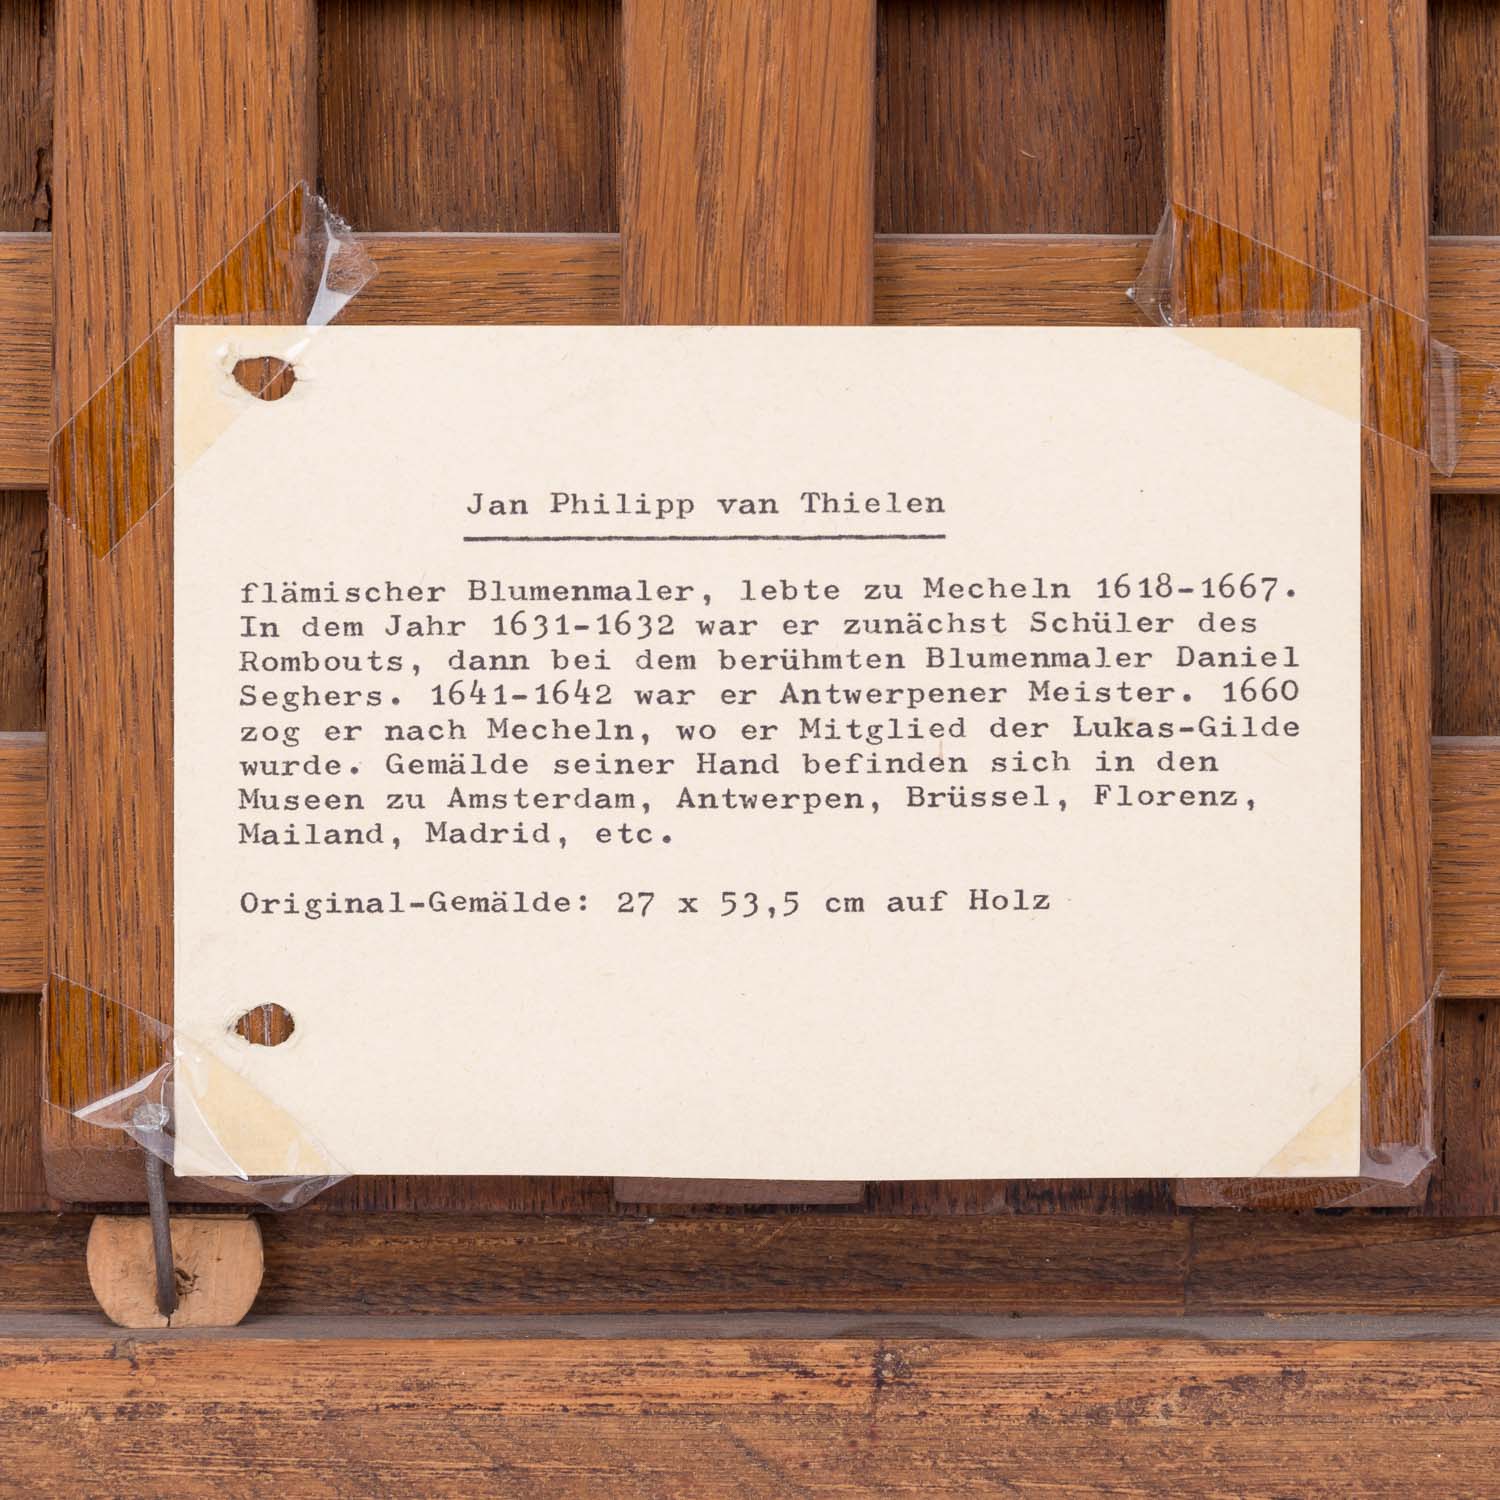 Jan Philipp van Thielen
flämischer Blumenmaler, lebte zu Mecheln 1618-1667.
In dem Jahr 1631-1632 war er zunächst Schüler des
Rombouts, dann bei dem berühmten Blumenmaler Daniel
Seghers. 1641-1642 war er Antwerpener Meister. 1660
zog er nach Mecheln, wo er Mitglied der Lukas-Gilde
wurde. Gemälde seiner Hand befinden sich in den
Museen zu Amsterdam, Antwerpen, Brüssel, Florenz,
Mailand, Madrid, etc.
Original-Gemälde: 27 x 53,5 cm auf Holz